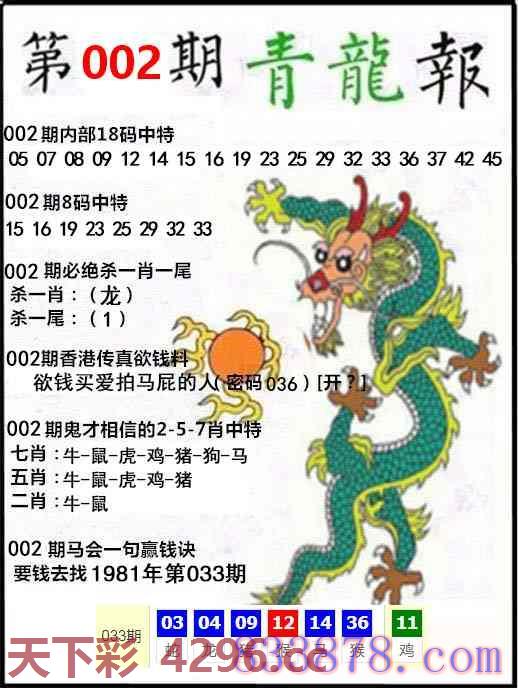 第002期青龍報
002期内部18码中特
05 07 08 09 12 14 15 16 19 23 25 29 32 33 36 37 42 45
002期8码中特
15 16 19 23 25 29 32 33
002 期必绝杀一肖一尾
杀一肖：（龙）
杀一尾：（1）
002期香港传真欲钱料
欲钱买爱拍马屁的人(密码036)[开?]
002期鬼才相信的2-5-7肖中特
七肖：牛-鼠-虎-鸡-猪-狗-马
五肖：牛-鼠-虎-鸡-猪
二肖：牛-鼠
002 期马会一句赢钱诀
要钱去找1981年第033期
033期 03 04 09 12 14 36 11
蛇 龙 猴 鸡
天下彩 4296.cc